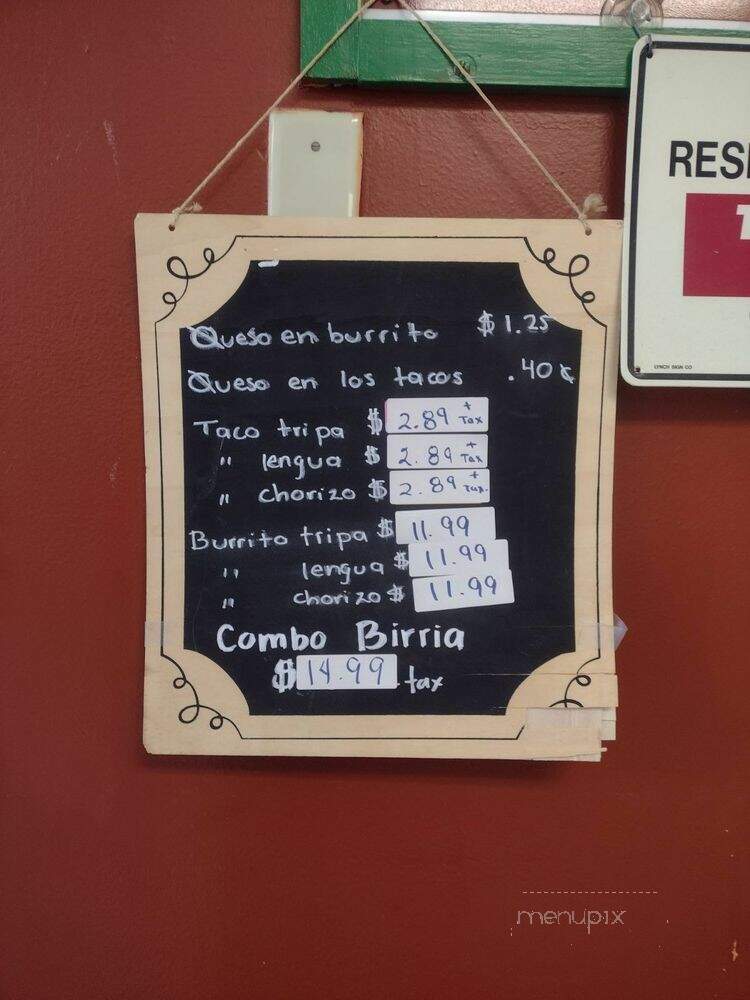 Queso en burrito $1.25
Queso en los tacos .40¢
Taco tripa $ 2.89 + Tax
" lengua $ 2.89 + Tax
" chorizo $ 2.89 + Tax.
Burrito tripa $ 11.99
" lengua $ 11.99
" chorizo $ 11.99
Combo Birria
$14.99 tax
RES
LYNCH SIGN CO
menupix